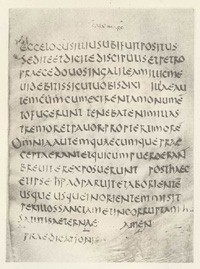 ECCELOCUSILLIUSUBIFUITPOSITUS
SEDITEETDICITEDISCIPULISETPETRO
PRAECEDOUOSINGALILEAMILLICME
UIDEBITISSICUTUOBISDIXI ILLAEAU
TEMCUMCUM A MONUME
TOFUGERUNTTENEBATENIMILLAS
TREMORETPAUORPROPTERTIMORE
OMNIAAUTEMQUAECUMQUEPRAE
CEPTAERANTETQUICUMPUEROERAN
BREUITEREXPOSUERUNT POSTHAEC
ETIPSE ADPARUITETABORIENTE
USQUEUSQUEINORIENTEMMISIT
PERILLOSSANCTAMETINCORRUPTAM
SALUTISAETERNAE AMEN
PRAEDICATIONIS